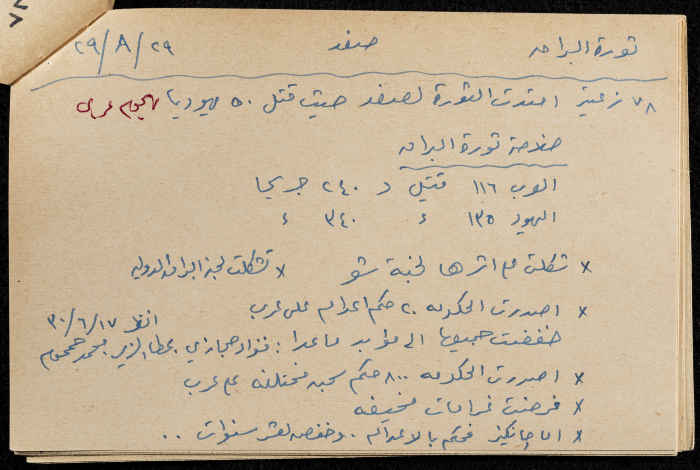 ثورة البراق صفد ٢٩/٨/٢٩
٧٨ زعيتر امتدت الثورة لصفد حيث قتل ٥٠ يهوديا بهجوم عربي
خلاصة ثورة البراق
العرب ١١٦ قتيل و ٢٤٠ جريحا
اليهود ١٣٥ ء ٣٤٠ ء
× شكلت على اثرها لجنة شو × تشكلت لجنة البراق الدولية
× اصدرت الحكومة ٢٠ حكم اعدام على عرب
خففت جميعها الى مؤبد ما عدا : فؤاد حجازي، عطا الزير، محمد جمجوم
انظر ٣٠/٦/١٧
× اصدرت الحكومة ٨٠٠ حكم سجن مختلفة على عرب
× فرضت غرامات مخيفة
× اما حانكيز فحكم بالاعدام .. وخفض لعشر سنوات ..